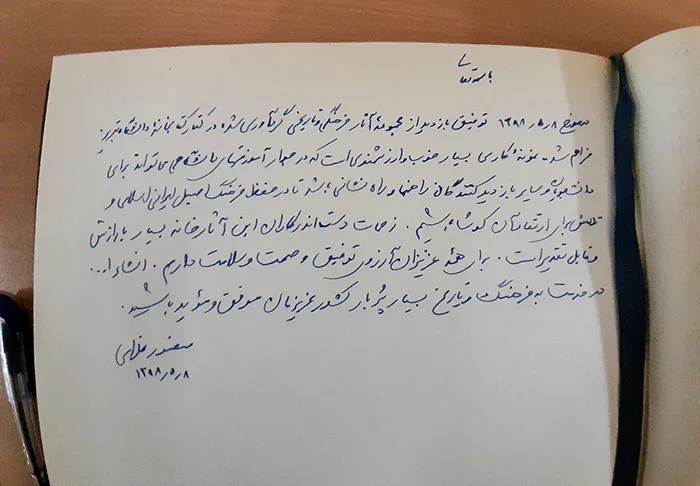 باسمه تعالی
مورخ ۱۳۹۸/۵/۸ توفیق بازدید از مجموعه آثار فرهنگی و تاریخی گردآوری شده در کنار کتابخانه دانشگاه تبریز
فراهم شد. نمونه کاری بسیار خوب و ارزشمندی است که در کنار آموزشهای دانشگاهی می تواند برای
دانشجویان و سایر بازدیدکنندگان راهنما و راه نشانی باشد تا در حفظ فرهنگ اصیل ایرانی اسلامی و
تلاش برای ارتقاء آن کوشا باشیم. زحمات دست اندرکاران این آثارخانه بسیار باارزش
و قابل تقدیر است. برای همه عزیزان آرزوی توفیق و صحت و سلامت دارم. انشاءا...
در خدمت به فرهنگ و تاریخ بسیار پُربار کشور عزیزمان موفق و مؤید باشید.
منصور
۱۳۹۸/۵/۸